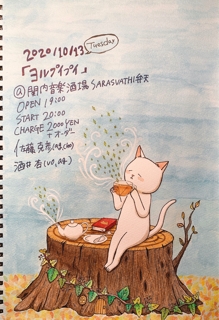 2020/10/13 Tuesday
「ヨルプイプイ」
@関内音楽酒場SARASVATHI弁天
OPEN 19:00
START 20:00
CHARGE 2000YEN
+オーダー
佐藤克彦
酒井杏(vo,pf)